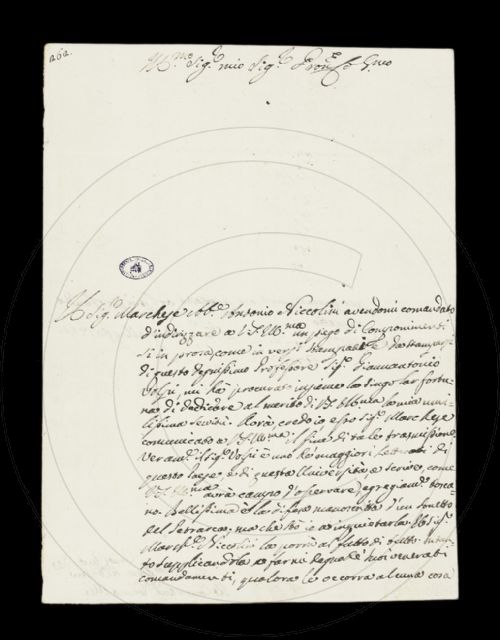 262.
Ill.mo Sig.r mio Sig.r Pron.e Col.mo
Il Sig.r Marchese Ab.e Antonio Niccolini avendomi comandato
d'indirizzare a V.S. Ill.ma un piego di Componimenti
sì in prosa, come in versi stampati e da stamparsi
di questo degnissimo Professore Sig.r Giannantonio
Volpi, mi ha procurato insieme la singolar fortu-
na di dedicare al merito di V.S. Ill.ma la mia umi-
lissima servitù. Avrà credo io esso Sig.r Marchese
comunicato a V.S. Ill.ma il fine di tale trasmissione.
Il Sig.r Volpi è uno de' maggiori Letterati di
questo Paese, e di questa Università, e scrive, come
V.S. Ill.ma avrà campo d'osservare, egregiamente tosca-
no. Bellissima è la difesa manoscritta d'un sonetto
del Petrarca; ma che sto io a inquietarla. Il Sig.r
March.e Niccolini la porrà al fatto di tutto. Intanto
supplicandola a farmi degno de' suoi venerati
comandamenti, qualora le occorra alcuna cosa